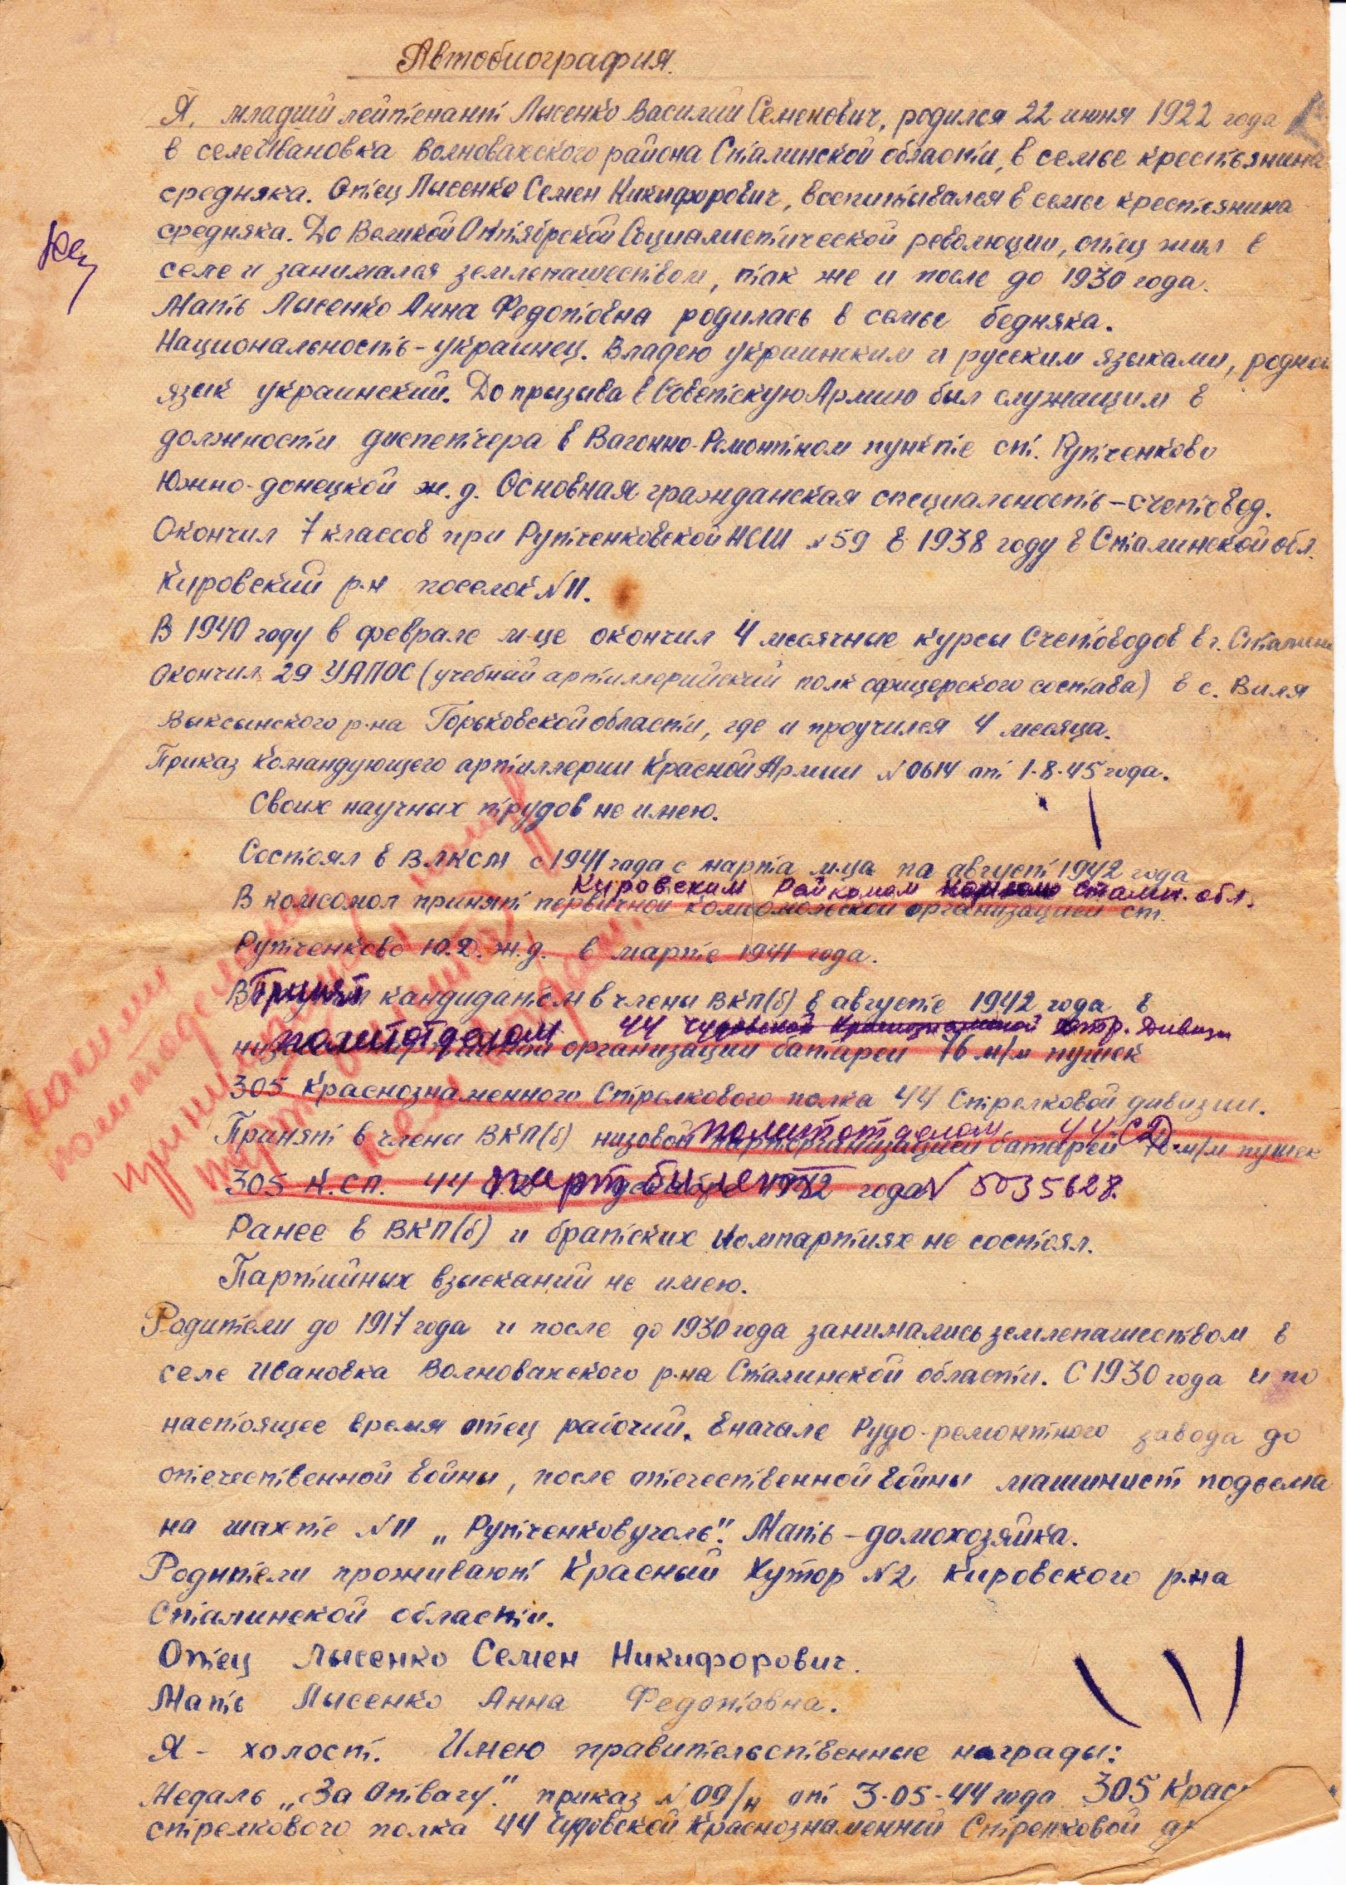 Автобиография.
Я, младший лейтенант Лысенко Василий Семенович, родился 22 июня 1922 года
в селе Ивановка Волновахского района Сталинской области, в семье крестьянина
средняка. Отец Лысенко Семен Никифорович, воспитывался в семье крестьянина
средняка. До Великой Октябрской Социалистической революции, отец жил в
селе и занимался землепашеством, так же и после до 1930 года.
Мать Лысенко Анна Федотовна родилась в семье бедняка.
Национальность - украинец. Владею украинским и русским языками, родной
язык украинский. До призыва в Советскую Армию был служащим в
должности диспетчера в Вагонно-Ремонтном пункте ст. Рутченково
Южно-донецкой ж.д. Основная гражданская специальность - счетовод.
Окончил 7 классов при Рутченковской НСШ №59 в 1938 году в Сталинской обл.
Кировский р-н поселок №11.
В 1940 году в феврале м-це окончил 4 месячные курсы Счетоводов в г. Сталино
Окончил 29 УАПОС (учебный артиллерийский полк офицерского состава) в с. Виля
Выксынского р-на Горьковской области, где и проучился 4 месяца.
Приказ Командующего артиллерии Красной Армии №0614 от 1-8-45 года.
Своих научных трудов не имею.
Состоял в ВЛКСМ с 1941 года с марта м-ца по август 1942 года
Кировским Райкомом Сталин. обл.
В комсомол принят первичной комсомольской организацией ст.
Рутченково Ю.Д.ж.д. в марте 1941 года.
Принят кандидатом в члены ВКП(б) в августе 1942 года в
политотделом 44 Чудовской Краснознаменной стр. Дивизи
организации батареи 76 м/м пушек
305 Краснознаменного Стрелкового полка 44 Стрелковой дивизии.
политотделом 44 СД
Принят в члена ВКП(б) низовой парторганизацией батареи 76 м/м пушек
305 К.СП. 44 партбилет 1942 года № 5035628.
Ранее в ВКП(б) и братских Компартиях не состоял.
Партийных взысканий не имею.
Родители до 1917 года и после до 1930 года занимались землепашеством в
селе Ивановка Волновахского р-на Сталинской области. С 1930 года и по
настоящее время отец рабочий. Вначале Рудо-ремонтного завода до
отечественной войны, после отечественной войны машинист подъема
на шахте №11 „Рутченковуголь". Мать - домохозяйка.
Родители проживают Красный Хутор №2 Кировского р-на
Сталинской области.
Отец Лысенко Семен Никифорович.
Мать Лысенко Анна Федотовна.
Я - холост. Имею правительственные награды:
Медаль „За Отвагу". приказ №09/н от 3-05-44 года 305 Крас
стрелкового полка 44 Чудовской Краснознаменной Стрелковой д
какими
политотделами